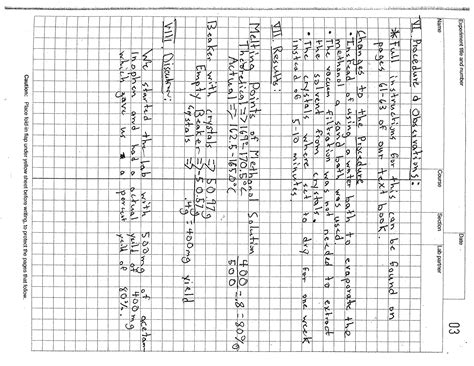 03
Experiment title and number
Date
Name
Course
Section
Lab partner
VI. Procedure & Observations:
*Full instructions for this can be found on
pages 61-63 of our text book.
Changes to the Procedure
• Instead of using a water bath to evaporate the
methanol a sand bath was used.
• The vacuum filtration was not needed to extract
the solvent from crystals.
• The crystals where set to dry for one week
instead of 5-10 minutes.
VII. Results:
Melting Points of Methanol Solution
Theoretical => 169-170.5°C
Actual => 162.5-165.0°C
400
500
= .8 = 80%
Beaker with crystals => 50.97g
Empty Beaker => - 50.57g
Crystals => .4g = 400mg yield
VIII. Discussion:
We started the lab with 500mg of acetam
inophen and had a actual yeild of 400mg
which gave us a percent yeild of 80%.
Caution: Place text in flap under yellow sheet before writing, to protect the pages that follow.